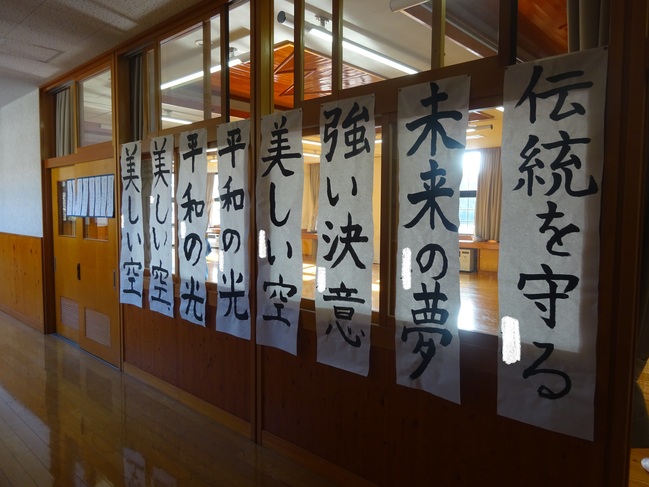 伝統を守る
未来の夢
強い決意
美しい空
平和の光
平和の光
美しい空
美しい空